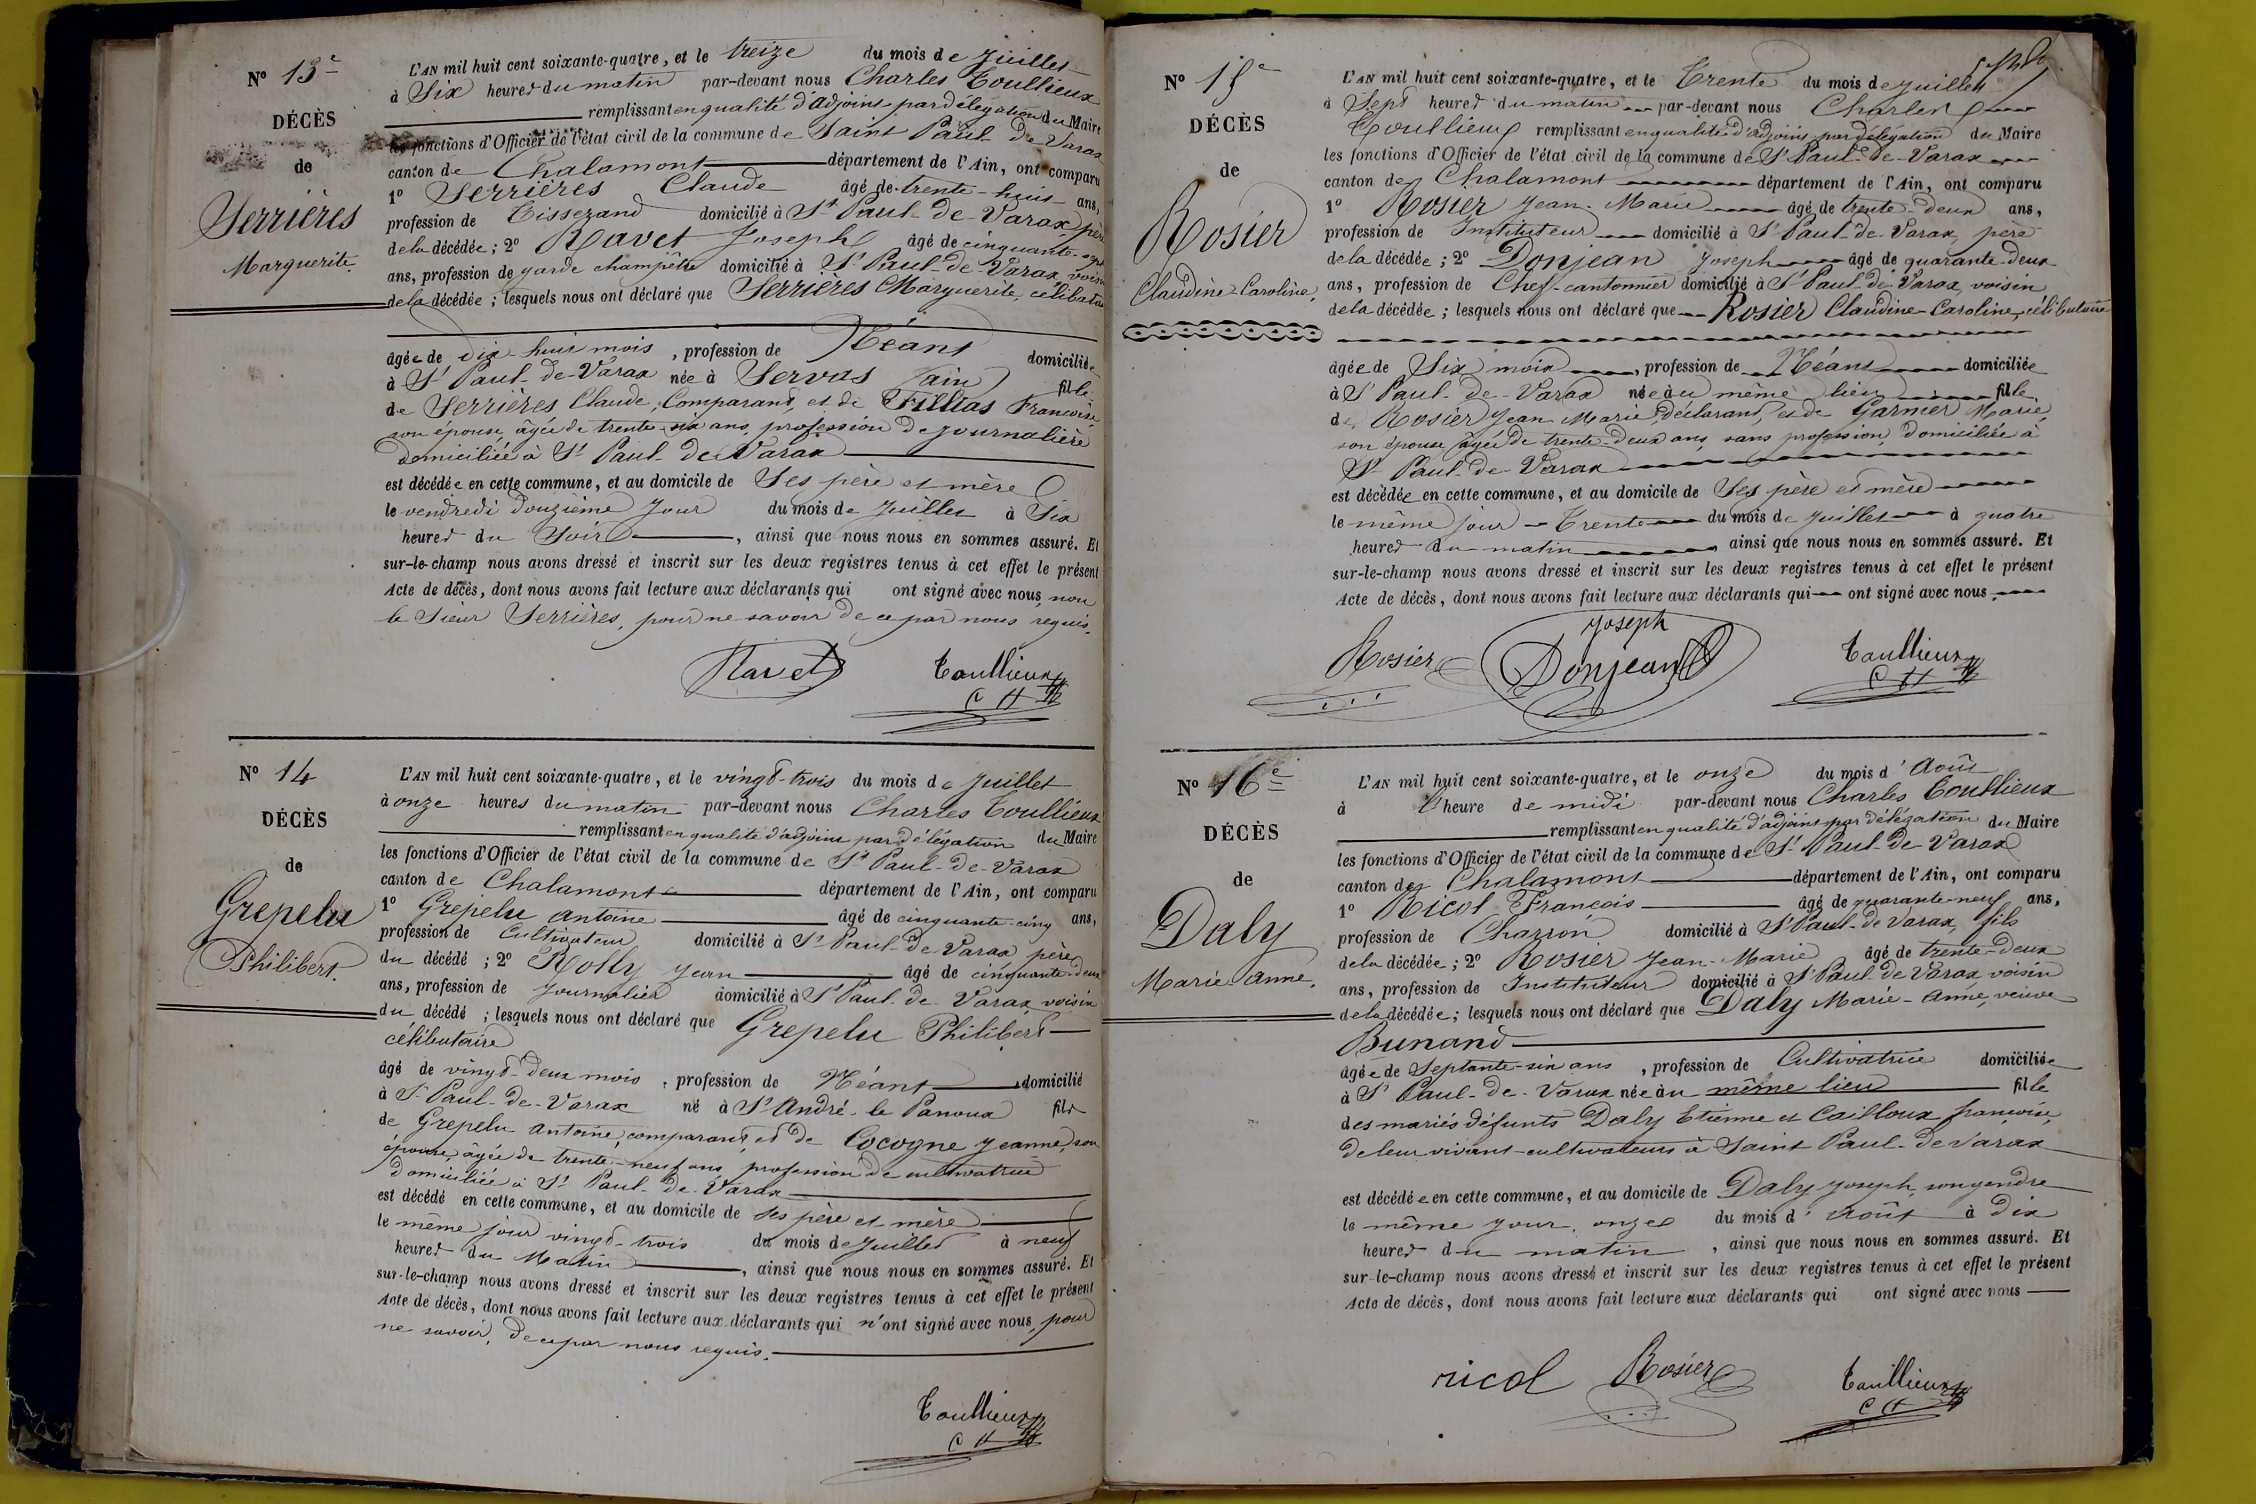 N° 13e
DÉCÈS
de
Serrières
Marguerite.
L'AN mil huit cent soixante-quatre, et le treize du mois de Juillet
à Six heures du matin par-devant nous Charles Toullieux
remplissant en qualité d'adjoint par délégation du Maire
les fonctions d'Officier de l'état civil de la commune de Saint Paul de Varax
canton de Chalamont département de l'Ain, ont comparu
1° Serrières Claude âgé de trente-huit ans,
profession de Tisserand domicilié à St Paul-de-Varax, père
de la décédée; 2° Ravet Joseph âgé de cinquante-sept
ans, profession de garde champêtre domicilié à St Paul-de-Varax, voisin
de la décédée; lesquels nous ont déclaré que Serrières Marguerite, célibataire
âgée de dix-huit mois, profession de Néant domiciliée
à St Paul-de-Varax née à Servas (ain) fille
de Serrières Claude, Comparant, et de Fillias Françoise
son épouse, âgée de trente-six ans, profession de journalière
domiciliée à St Paul de Varax
est décédée en cette commune, et au domicile de Ses père et mère
le vendredi douzième jour du mois de Juillet à Six
heures du Soir, ainsi que nous nous en sommes assuré. Et
sur-le-champ nous avons dressé et inscrit sur les deux registres tenus à cet effet le présent
Acte de décès, dont nous avons fait lecture aux déclarants qui ont signé avec nous, non
le Sieur Serrières, pour ne savoir de ce par nous requis.
Ravet Toullieux
C H
N° 14
DÉCÈS
de
Grepelu
Philibert.
L'AN mil huit cent soixante-quatre, et le vingt-trois du mois de Juillet
à onze heures du matin par-devant nous Charles Toullieux
remplissant en qualité d'adjoint par délégation du Maire
les fonctions d'Officier de l'état civil de la commune de St Paul-de-Varax
canton de Chalamont département de l'Ain, ont comparu
1° Grepelu antoine âgé de cinquante-cinq ans,
profession de Cultivateur domicilié à St Paul-de-Varax, père
du décédé; 2° Rolly Jean âgé de cinquante-deux
ans, profession de Journalier domicilié à St Paul-de-Varax, voisin
du décédé; lesquels nous ont déclaré que Grepelu Philibert
célibataire
âgé de vingt-deux mois, profession de Néant domicilié
à St Paul-de-Varax né à St André-le Panoux fils
de Grepelu antoine, comparant, et de Cocogne Jeanne, son
épouse, âgée de trente-neuf ans, profession de cultivatrice
domiciliée à St Paul-de-Varax
est décédé en cette commune, et au domicile de ses père et mère
le même jour vingt-trois du mois de Juillet à neuf
heures du Matin, ainsi que nous nous en sommes assuré. Et
sur-le-champ nous avons dressé et inscrit sur les deux registres tenus à cet effet le présent
Acte de décès, dont nous avons fait lecture aux déclarants qui n'ont signé avec nous, pour
ne savoir, de ce par nous requis.
Toullieux
C H
N° 15e
DÉCÈS
de
Rosier
Claudine-Caroline,
L'AN mil huit cent soixante-quatre, et le Trente du mois de Juillet
à Sept heures du matin par-devant nous Charles
Toullieux remplissant en qualité d'adjoint par délégation du Maire
les fonctions d'Officier de l'état civil de la commune de St Paul-de-Varax
canton de Chalamont département de l'Ain, ont comparu
1° Rosier Jean-Marie âgé de trente-deux ans,
profession de Instituteur domicilié à St Paul-de-Varax, père
de la décédée; 2° Donjean Joseph âgé de quarante-deux
ans, profession de Chef-cantonnier domicilié à St Paul-de-Varax, voisin
de la décédée; lesquels nous ont déclaré que Rosier Claudine-Caroline, célibataire
âgée de Six mois, profession de Néant domiciliée
à St Paul-de-Varax née au même lieu fille
de Rosier Jean-Marie, déclarant, et de Garnier Marie,
son épouse, âgée de trente-deux ans, sans profession, domiciliée à
St Paul-de-Varax
est décédée en cette commune, et au domicile de Ses père et mère
le même jour Trente du mois de Juillet à quatre
heures du matin, ainsi que nous nous en sommes assuré. Et
sur-le-champ nous avons dressé et inscrit sur les deux registres tenus à cet effet le présent
Acte de décès, dont nous avons fait lecture aux déclarants qui ont signé avec nous.
Rosier Joseph Donjean Toullieux
C H
N° 16e
DÉCÈS
de
Daly
Marie-Anne.
L'AN mil huit cent soixante-quatre, et le onze du mois d'Août
à l'heure de midi par-devant nous Charles Toullieux
remplissant en qualité d'adjoint par délégation du Maire
les fonctions d'Officier de l'état civil de la commune de St Paul-de-Varax
canton de Chalamont département de l'Ain, ont comparu
1° Nicol François âgé de quarante-neuf ans,
profession de Charron domicilié à St Paul-de-Varax, fils
de la décédée; 2° Rosier Jean-Marie âgé de trente-deux
ans, profession de Instituteur domicilié à St Paul-de-Varax, voisin
de la décédée; lesquels nous ont déclaré que Daly Marie-Anne, veuve
Bunand
âgée de Septante-six ans, profession de Cultivatrice domiciliée
à St Paul-de-Varax née au même lieu fille
des mariés défunts Daly Etienne et Cailloux françoise,
de leur vivant cultivateurs à Saint Paul-de-Varax
est décédée en cette commune, et au domicile de Daly Joseph, son gendre
le même jour onze du mois d'Août à dix
heures du matin, ainsi que nous nous en sommes assuré. Et
sur-le-champ nous avons dressé et inscrit sur les deux registres tenus à cet effet le présent
Acte de décès, dont nous avons fait lecture aux déclarants qui ont signé avec nous
nicol Rosier Toullieux
C H